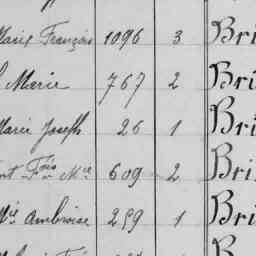 Marie François 1096 3 Bri
Marie 767 2 Bri
Marie Joseph 26 1 Bri
nt Fois Mie 609 2 Bri
Mie Ambroise 259 1 Bri